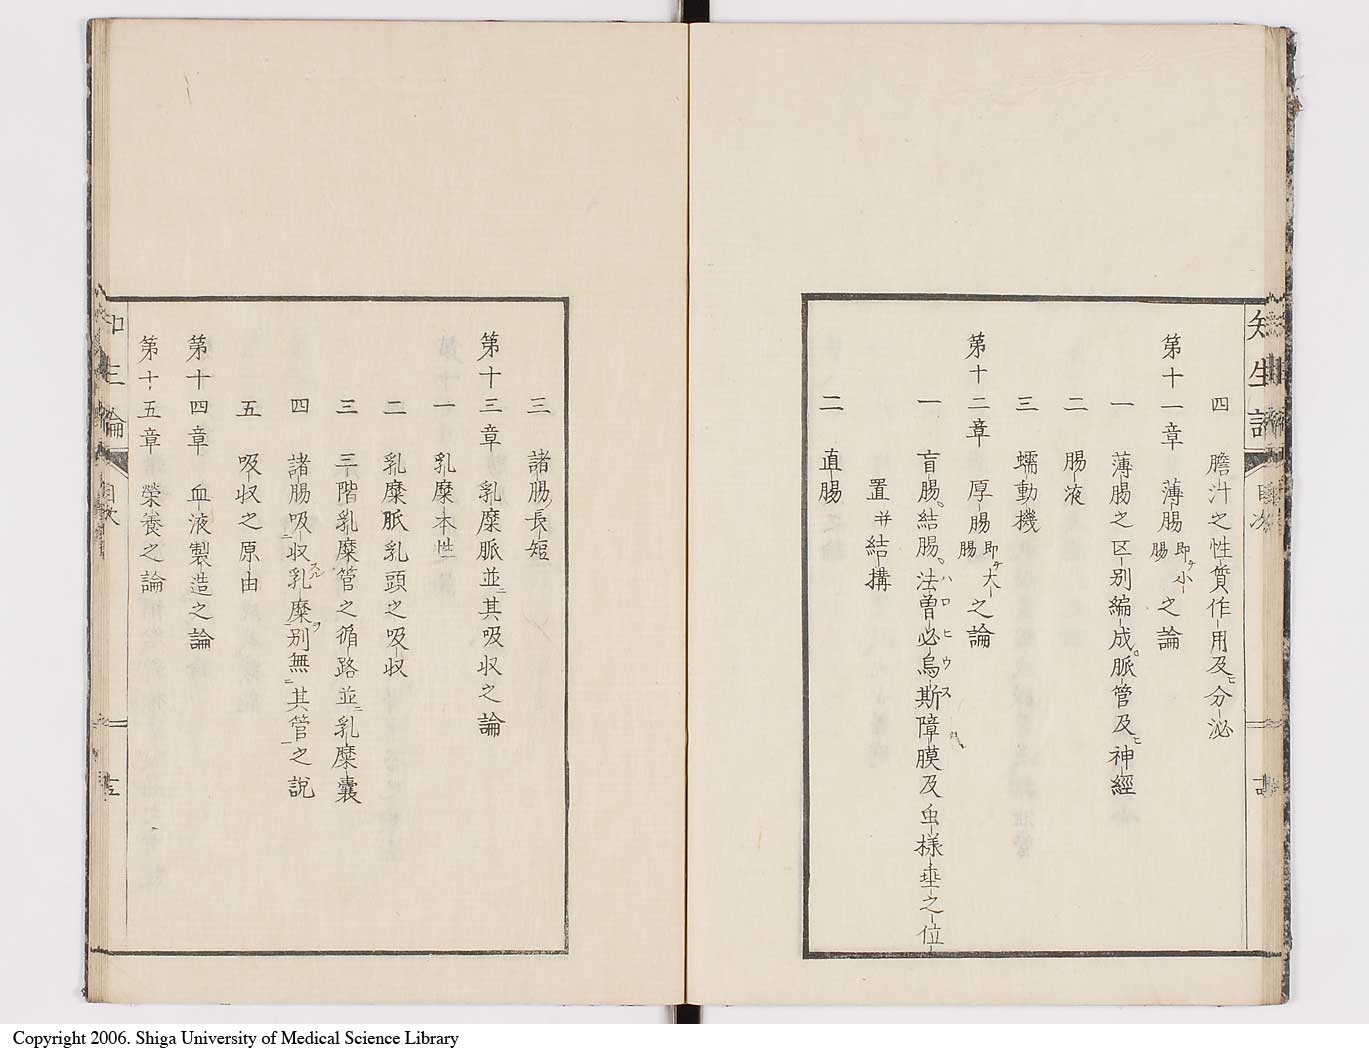 四 膽汁之性質作用及ヒ分泌
第十一章 薄腸即ケ小腸之論
一 薄腸之区別編成脈管及ヒ神經
二 腸液
三 蠕動機
第十二章 厚腸即ケ大腸之論
一 盲腸結腸法曽必烏斯障膜及虫様垂之位
ハロヒウス
置并結搆
二 直腸
三 諸腸長短
第十三章 乳糜脈並ニ其吸収之論
一 乳糜本性
二 乳糜脈乳頭之吸収
三 三階乳糜管之循路並ニ乳糜嚢
四 諸腸吸収ニスル乳糜ヲ別無ニ其管一之説
五 吸収之原由
第十四章 血液製造之論
第十五章 榮養之論
目次
Copyright 2006. Shiga University of Medical Science Library